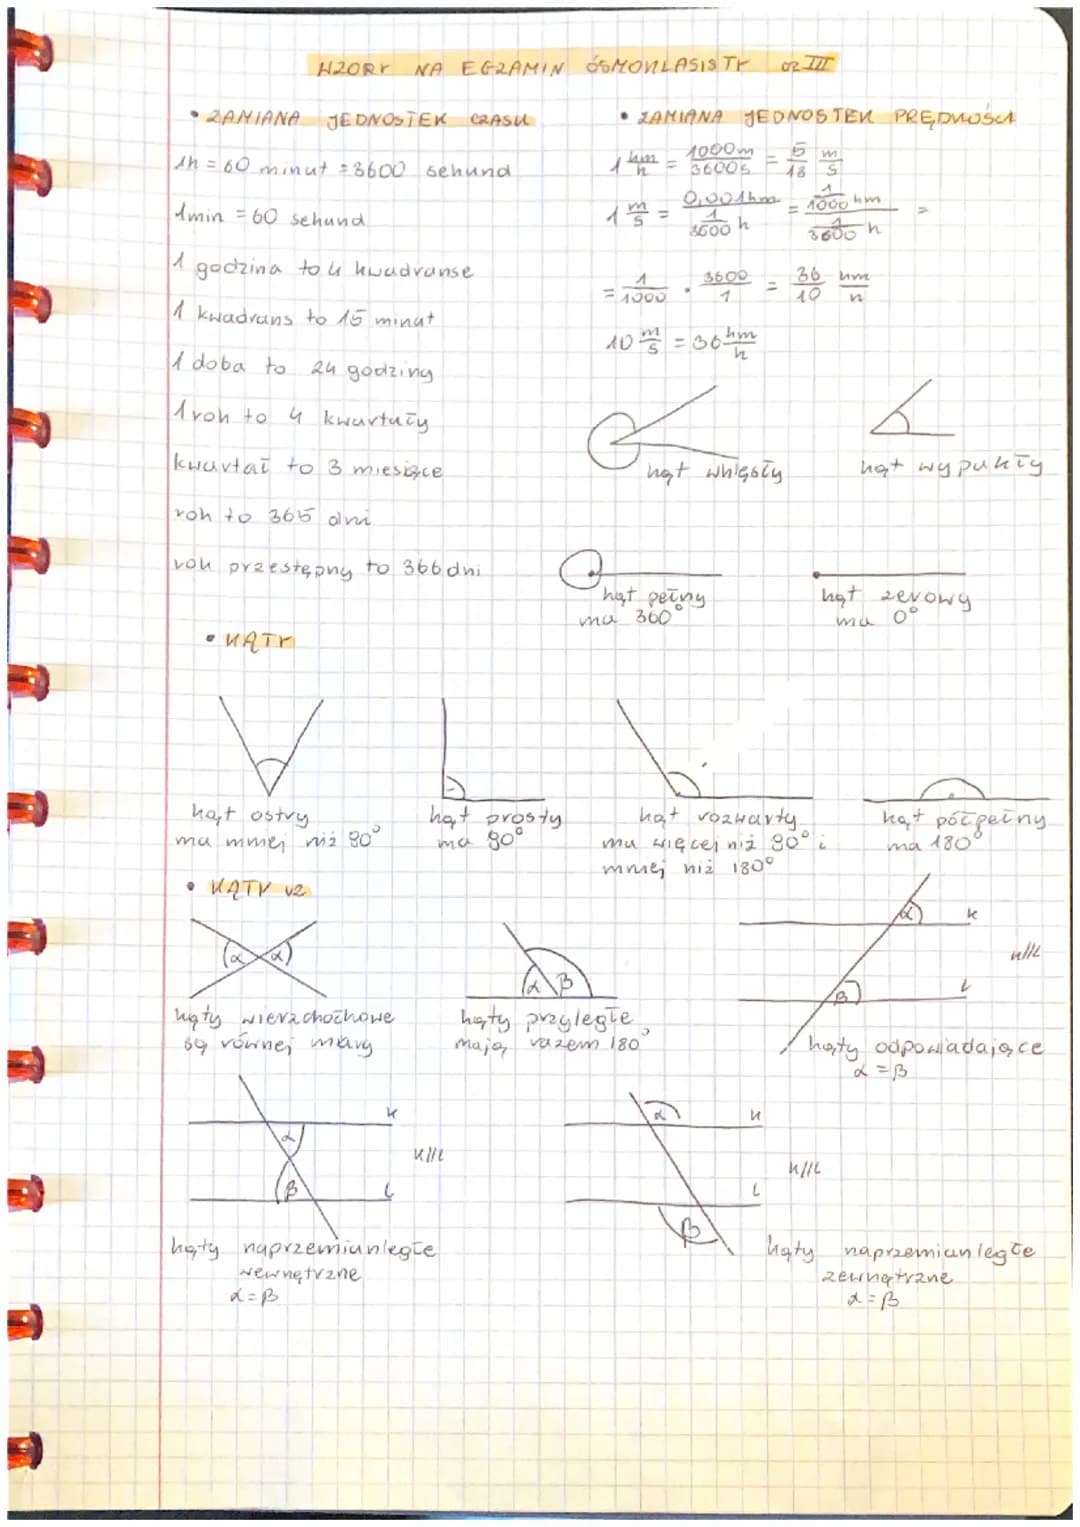 WZORY NA EGZAMIN ÓSMOKLASISTY cz III
• ZAMIANA JEDNOSTEK CZASU
1h = 60 minut = 3600 sekund
1min = 60 sekund
1 godzina to 4 kwadranse
1 kwadrans to 15 minut
1 doba to 24 godziny
1 rok to 4 kwartały
kwartał to 3 miesiące
rok to 365 dni
rok przestępny to 366 dni
• ZAMIANA JEDNOSTEK PRĘDKOŚCI
1 km/h = 1000m/3600s = 5/18 m/s
1 m/s = 0,001km / (1/3600 h) = (1/1000 km) / (1/3600 h) =
= 1/1000 · 3600/1 = 36/10 km/h
10 m/s = 36 km/h
kąt wklęsły
kąt wypukły
kąt pełny
ma 360°
kąt zerowy
ma 0°
• KĄTY
kąt ostry
ma mniej niż 90°
kąt prosty
ma 90°
kąt rozwarty
ma więcej niż 90° i
mniej niż 180°
kąt półpełny
ma 180°
• KĄTY v2
α α
kąty wierzchołkowe
są równej miary
α β
kąty przyległe
mają razem 180°
α k
k//l
β l
kąty odpowiadające
α = β
k
α
k//l
β l
kąty naprzemianległe
wewnętrzne
α = β
α k
k//l
l
β
kąty naprzemianległe
zewnętrzne
α = β